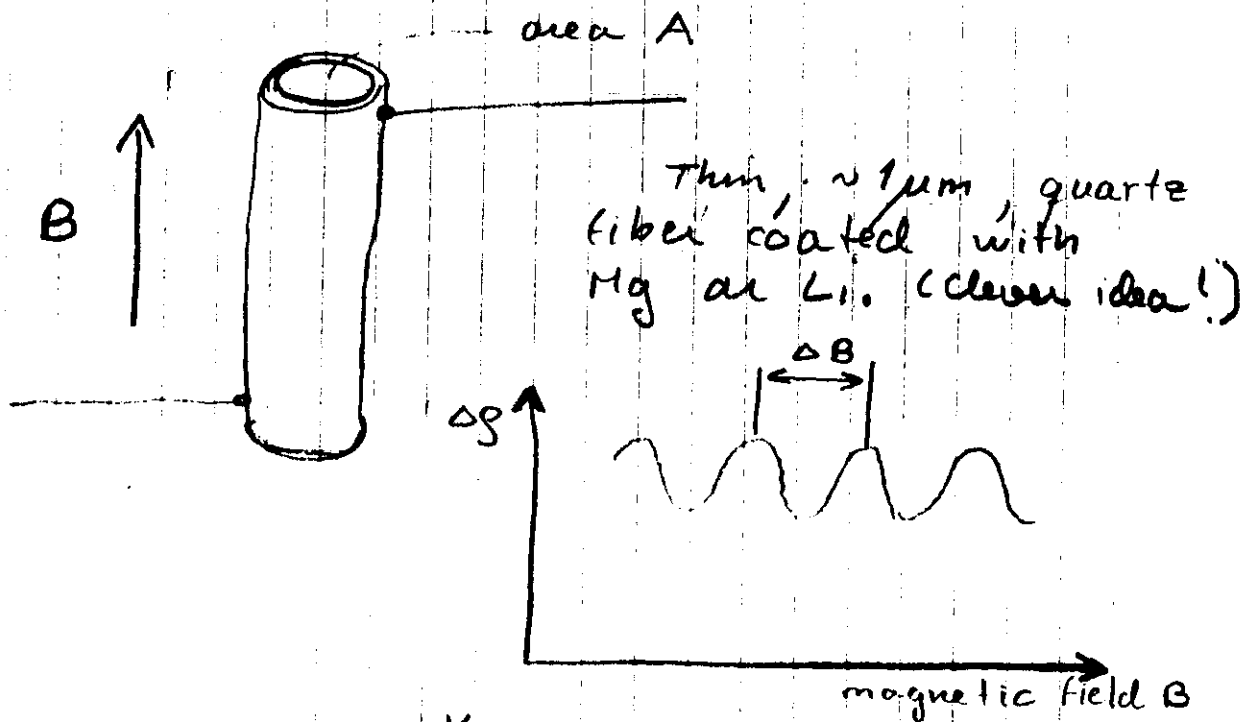 area A
B
Thin, ~ 1μm, quartz
fiber coated with
Mg or Li. (clever idea!)
ΔB
Δρ
magnetic field B